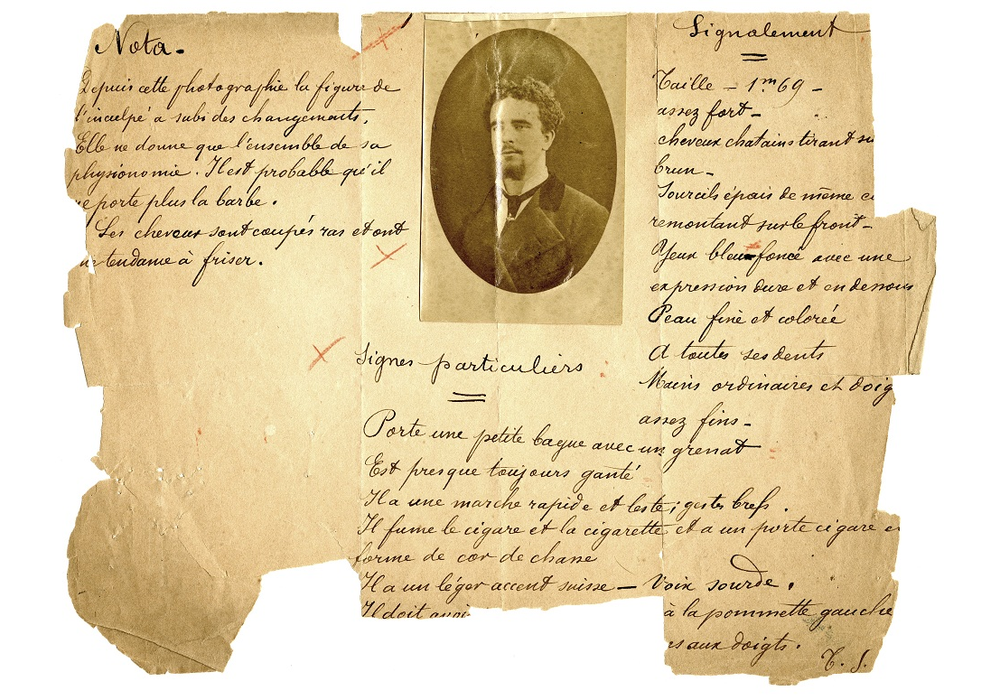 Nota.
Depuis cette photographie la figure de
l'inculpé a subi des changements,
Elle ne donne que l'ensemble de sa
physionomie. Il est probable qu'il
ne porte plus la barbe.
Les cheveux sont coupés ras et ont
une tendame à friser.
Signalement
Taille - 1m69 -
assez fort -
cheveux chatains tirant su
brun -
Sourcils épais de même c
remontant sur le front -
Yeux bleu foncé avec une
expression dure et en dessous
Peau fine et colorée
A toutes ses dents
Mains ordinaires et doig
assez fins -
Signes particuliers
Porte une petite bague avec un grenat
Est presque toujours ganté
Il a une marche rapide et leste; gestes brefs.
Il fume le cigare et la cigarette et a un porte cigare en
forme de cor de chasse
Il a un léger accent suisse - Voix sourde.
Il doit avoir à la pommette gauche
es aux doigts.
T. S.